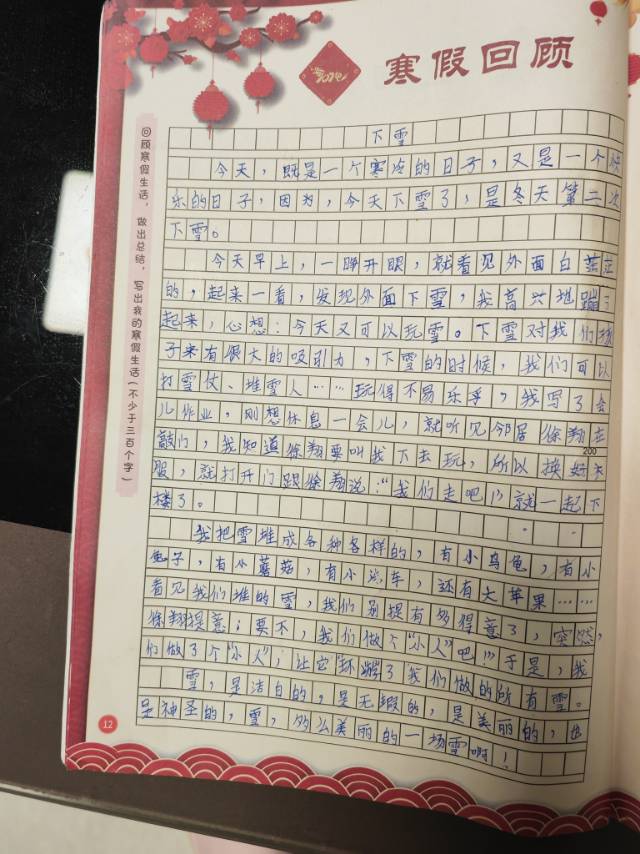 2024
寒假回顾
回顾寒假生活，做出总结，写出我的寒假生活(不少于三百个字)
下雪
今天，既是一个寒冷的日子，又是一个快
乐的日子，因为，今天下雪了，是冬天第二次
下雪。
今天早上，一睁开眼，就看见外面白茫茫
的，起来一看，发现外面下雪，我高兴地蹦了
起来，心想：今天又可以玩雪。下雪对我们孩
子来有很大的吸引力，下雪的时候，我们可以
打雪仗、堆雪人……玩得不易乐乎，我写了会
儿作业，刚想休息一会儿，就听见邻居徐翔在
敲门，我知道徐翔要叫我下去玩，所以换好衣
200
服，就打开门跟徐翔说："我们走吧!"就一起下
楼了。
我把雪堆成各种各样的，有小乌龟，有小
兔子，有小蘑菇，有小汽车，还有大苹果……
看见我们堆的雪，我们别提有多得意了，突然，
徐翔提意：要不，我们做个"小人"吧!"于是，我
们做了个"小人"；让它了我们做的所有雪。
雪，是洁白的，是无瑕的，是美丽的，也
是神圣的，雪，多么美丽的一场雪啊！
12